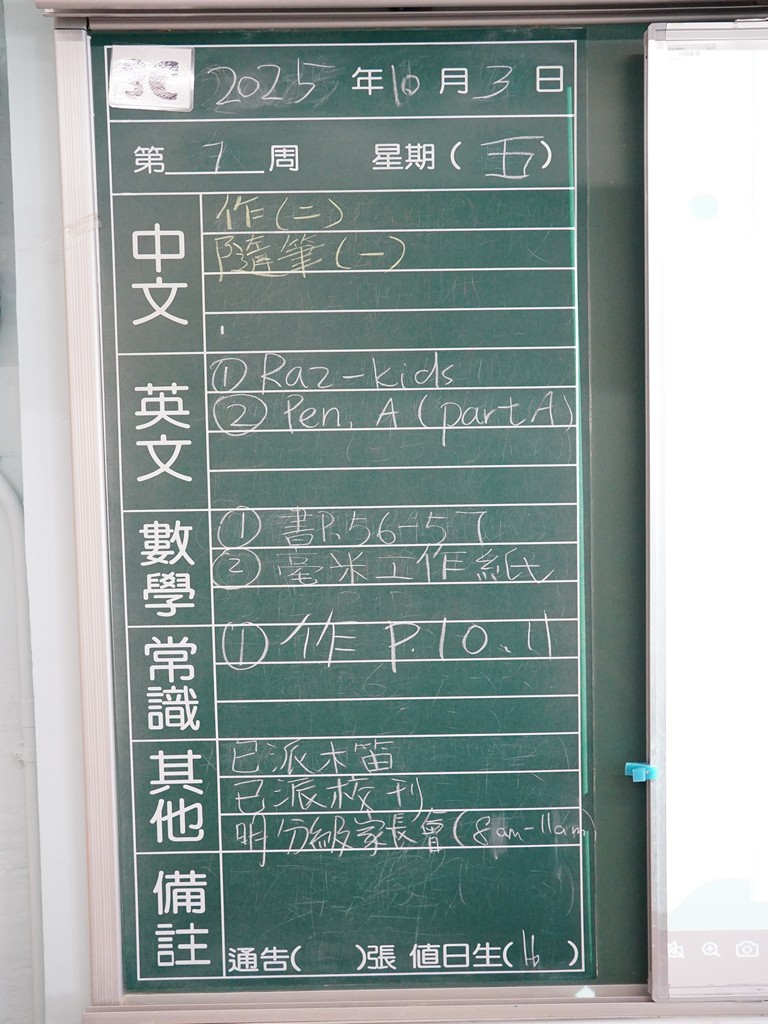 3C 2025年10月3日
第 7 周 星期(五)
中文
作(二)
隨筆(一)
英文
① Raz-kids
② Pen. A (part A)
數學
① 書P.56-57
② 毫米工作紙
常識
① 作 P.10、11
其他
已派木笛
已派校刊
明分級家長會(8am-11am)
備註
通告( )張 值日生(16)